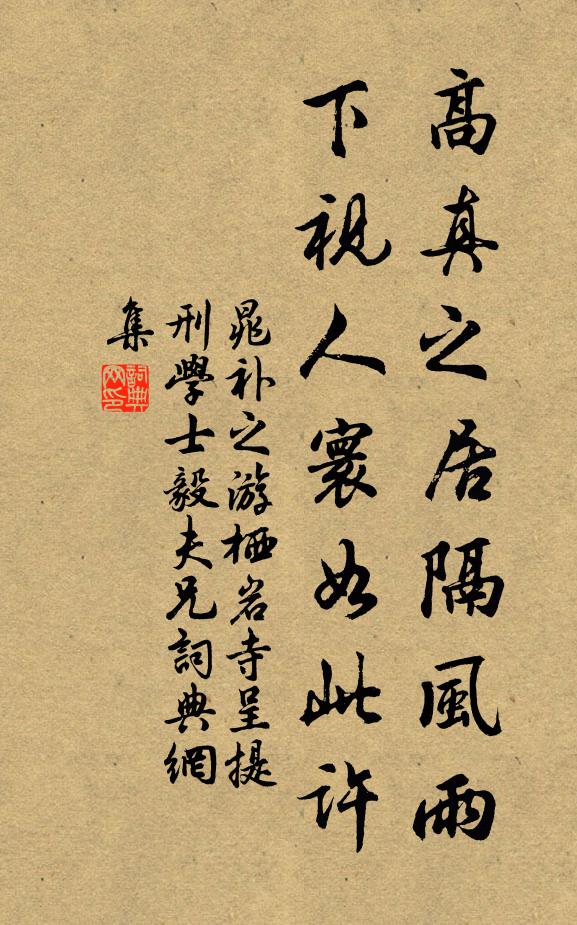 高真之居隔風雨
下視人寰如此許
晁補之游栖岩寺呈提
刑學士毅夫兄詞典網
集
詞典網印